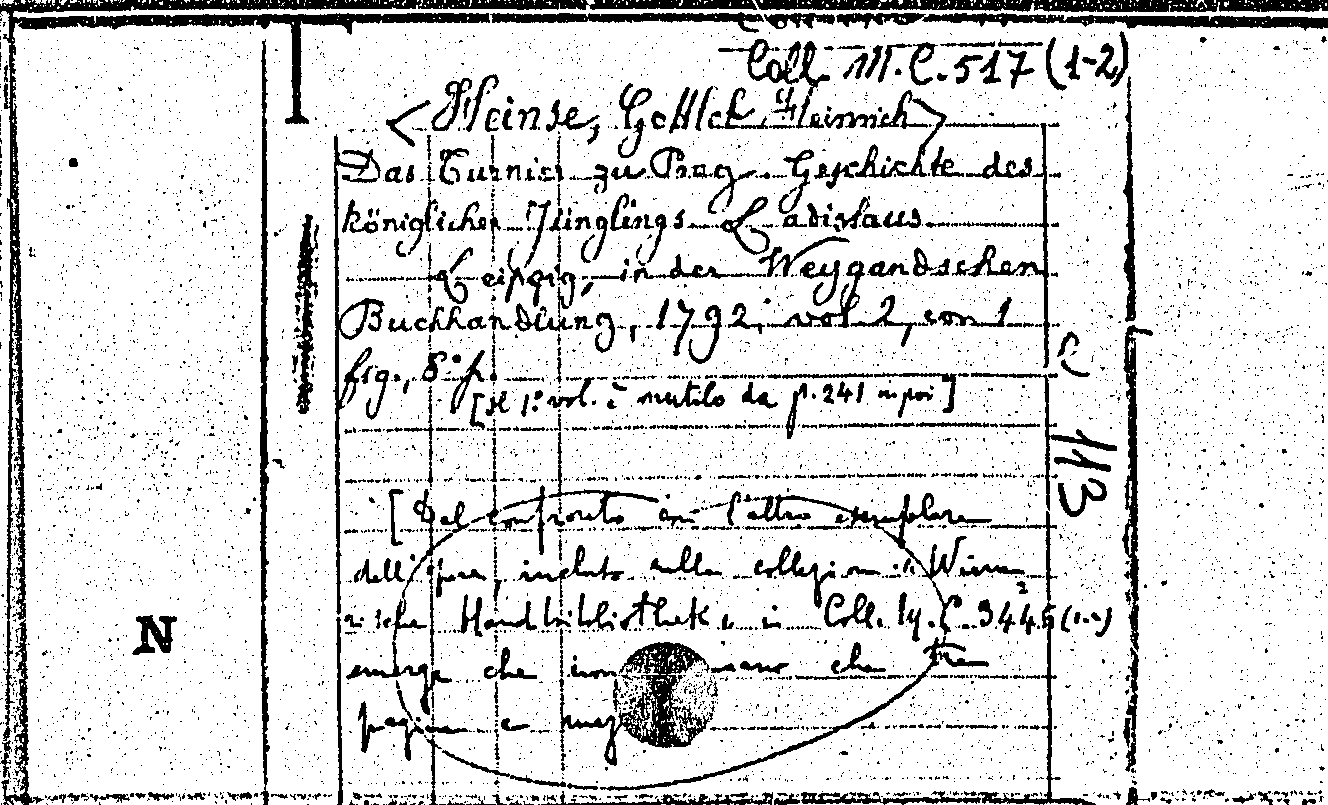 Coll. M.C.517 (1-2)
<Heinse, Gottlob Heinrich>
Das Turnier zu Prag. Geschichte des
königlichen Jünglings Ladislaus.
Leipzig, in der Weygandschen
Buchhandlung, 1792, vol 2, con 1
fig., 8° p.
[Il 1° vol. è mutilo da p. 241 in poi]
113
[Dal confronto con l'altro esemplare
dell'opera, incluso nella collezione
Handbibliothek, in Coll. (1-2)
emerge che che tre
pagine e
N